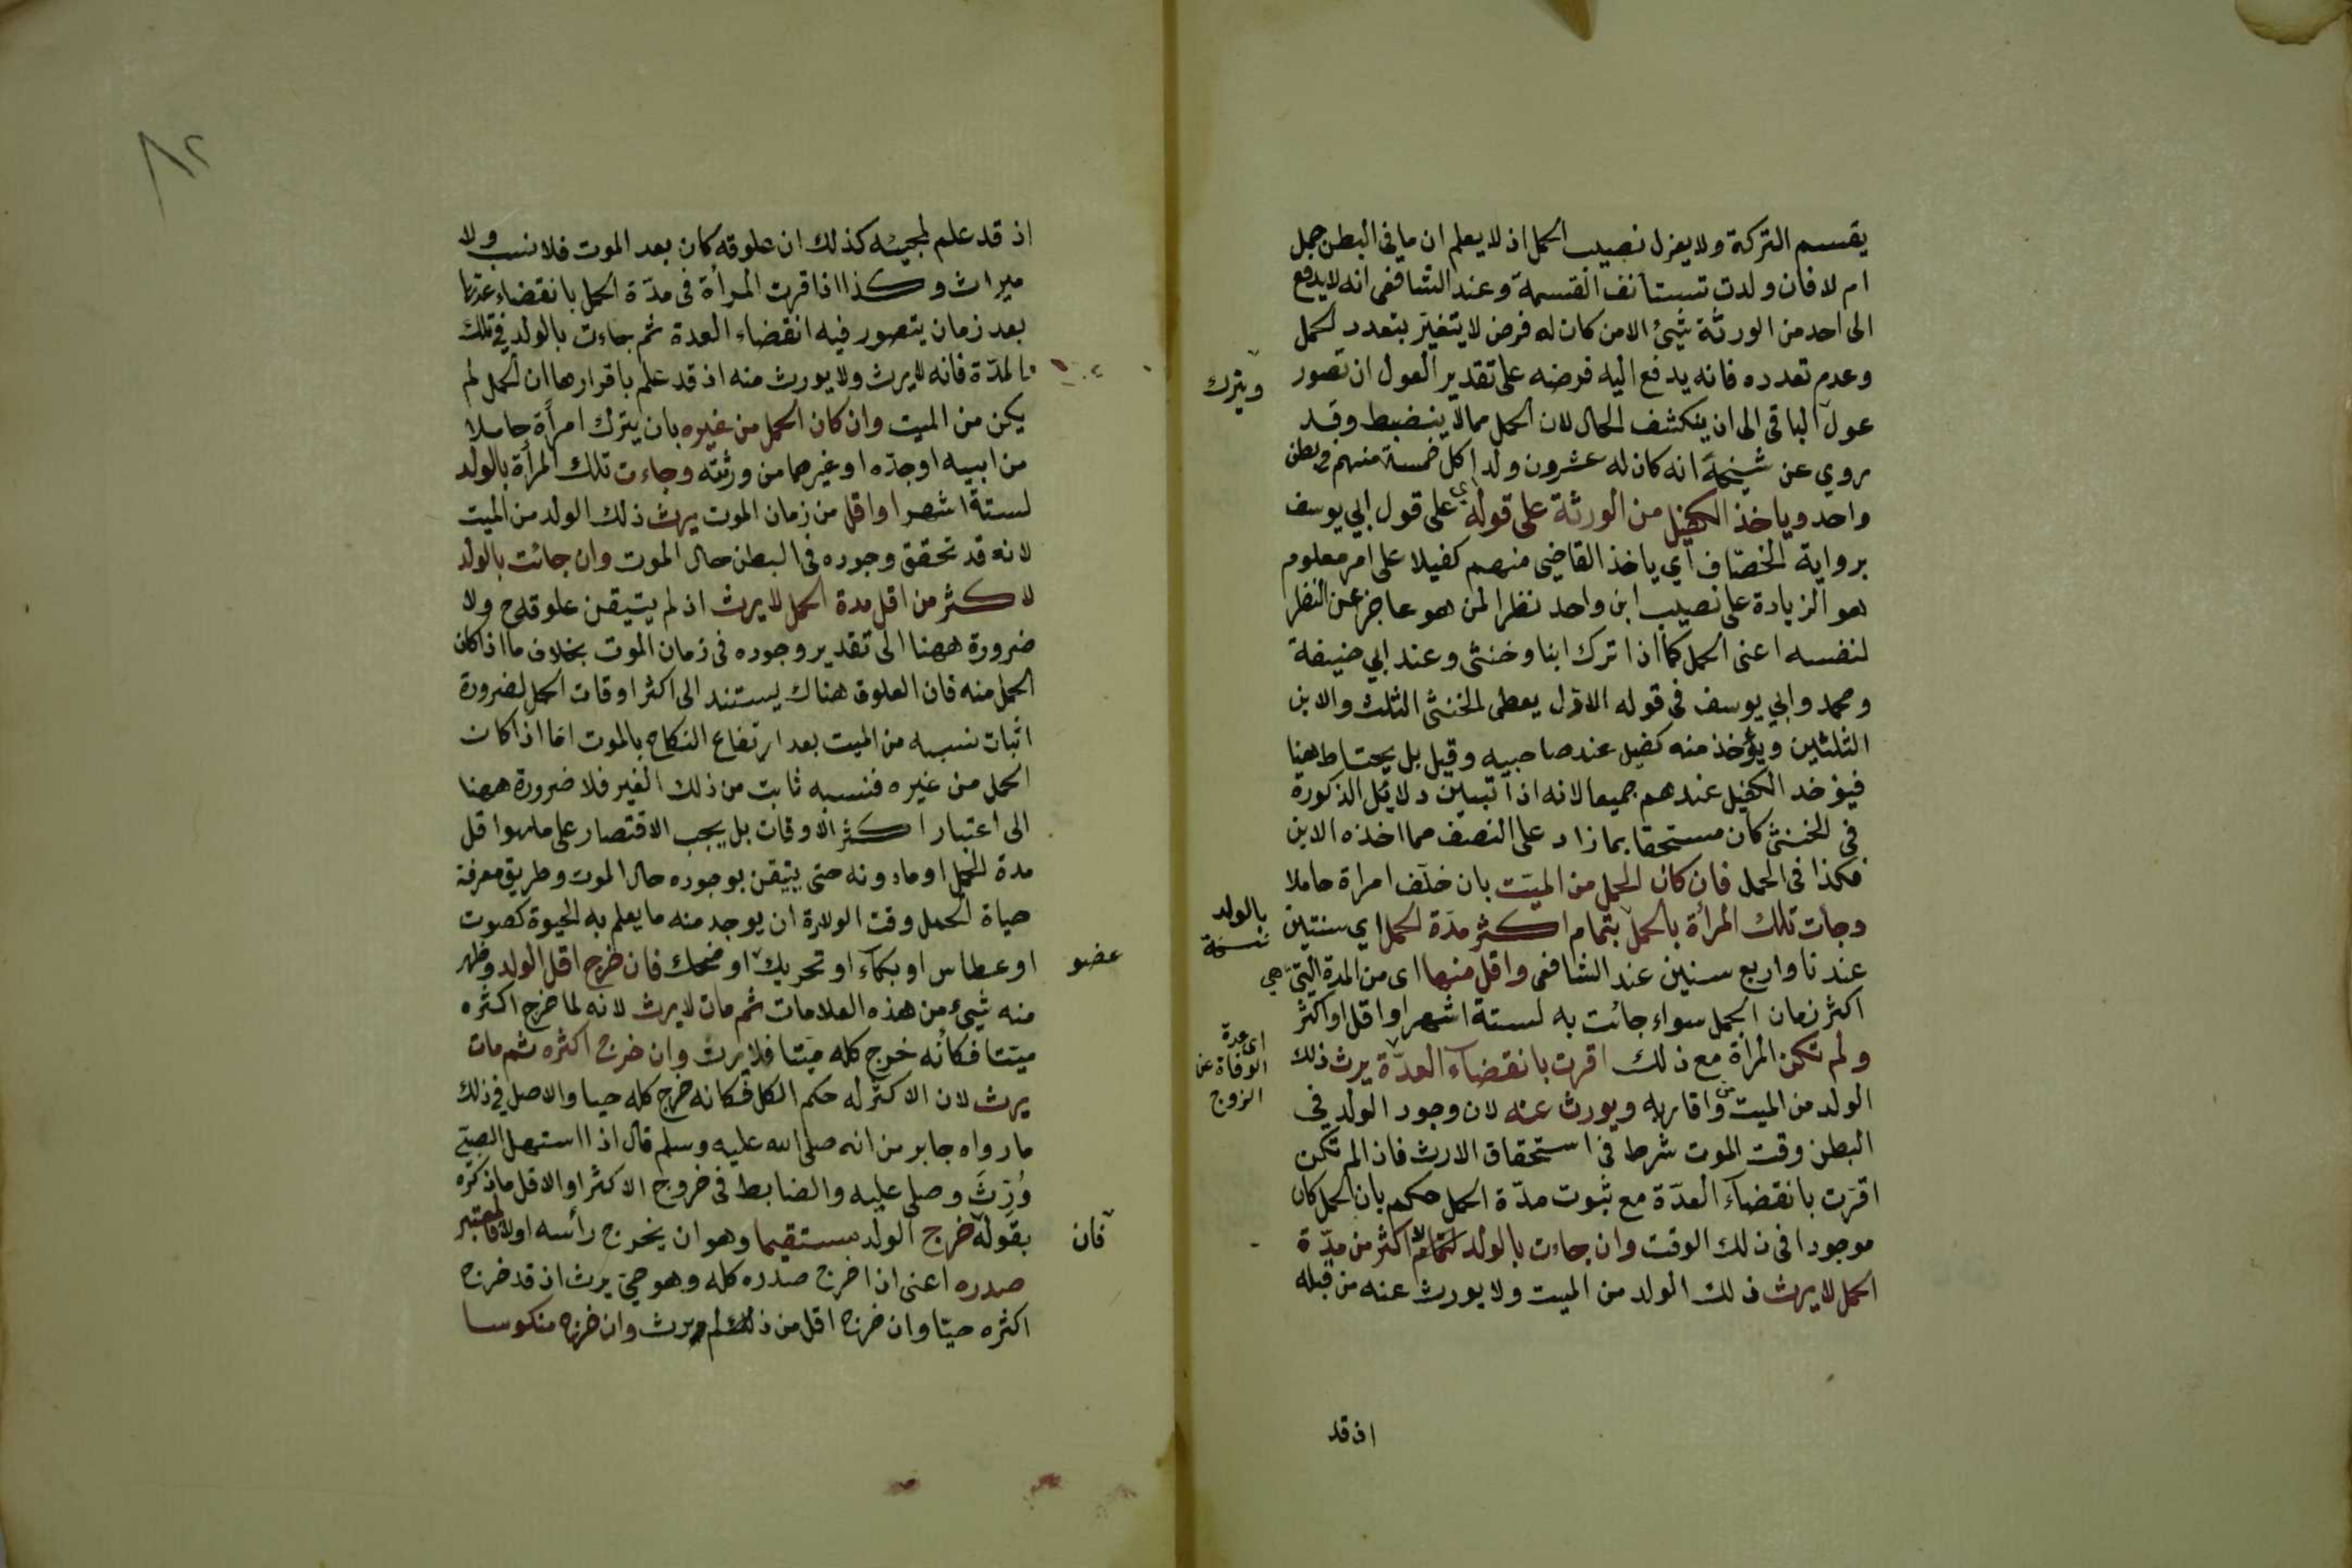 يقسم التركة ولا يعزل نصيب الحمل اذ لا يعلم ان ما فى البطن حمل
ام لا فان ولدت تستأنف القسمة وعند الشافعى انه لا يدفع
الى احد من الورثة شئ الا من كان له فرض لا يتغيّر بتعدد الحمل
وعدم تعدده فانه يدفع اليه فرضه على تقدير العول ان تصور
ويترك
عول الباقى الى ان ينكشف الحال لان الحمل مما لا ينضبط وقد
روي عن شيخه انه كان له عشرون ولدا كل خمسة منهم فى بطن
واحد وياخذ الكفيل من الورثة على قوله اي على قول ابي يوسف
برواية الخصّاف اي ياخذ القاضى منهم كفيلا على امر معلوم
هو الزيادة على نصيب ابن واحد نظرا لمن هو عاجز عن النظر
لنفسه اعنى الحمل كما اذا ترك ابنا وخنثى وعند ابي حنيفة
ومحمد وابي يوسف فى قوله الاول يعطى الخنثى الثلث والابن
الثلثين ويؤخذ منه كفيل عند صاحبيه وقيل بل يحتاط هنا
فيؤخد الكفيل عندهم جميعا لانه اذا تبين دلائل الذكورة
فى الخنثى كان مستحقا بما زاد على النصف مما اخذه الابن
فكذا فى الحمل فان كان الحمل من الميّت بان خلّف امراة حاملا
وجأت تلك المرأة بالحمل بتمام اكثر مدّة الحمل اي سنتين
بالولد
نسخة
عندنا واربع سنين عند الشافعى واقل منها اى من المدة التى هي
اكثر زمان الحمل سواء جائت به لستة اشهر او اقل او اكثر
ولم تكن المرأة مع ذلك اقرت بانقضآء العدّة يرث ذلك
اى عدة
الوفاة عن
الزوج
الولد من الميت واقاربه ويورث عنه لان وجود الولد فى
البطن وقت الموت شرط فى استحقاق الارث فاذا لم تكن
اقرّت بانقضآء العدّة مع ثبوت مدّة الحمل حكم بان الحمل كان
موجودا فى ذلك الوقت وان جاءت بالولد لتمام اكثر من مدّة
الحمل لا يرث ذلك الولد من الميت ولا يورث عنه من قبله
اذ قد
٨٢
اذ قد علم لمجيئه كذلك ان علوقه كان بعد الموت فلا نسب ولا
ميراث وكذا اذا اقرت المرأة فى مدّة الحمل بانقضاء عدتها
بعد زمان يتصور فيه انقضاء العدة ثم جاءت بالولد فى تلك
المدّة فانه لا يرث ولا يورث منه اذ قد علم باقرارها ان الحمل لم
يكن من الميت وان كان الحمل من غيره بان يترك امرأة حاملا
من ابيه او جدّه او غيرهما من ورثته وجاءت تلك المرأة بالولد
لستة اشهر او اقل من زمان الموت يرث ذلك الولد من الميت
لانه قد تحقق وجوده فى البطن حال الموت وان جائت بالولد
لاكثر من اقل مدة الحمل لا يرث اذ لم يتيقن علوقه ح ولا
ضرورة ههنا الى تقدير وجوده فى زمان الموت بخلاف ما اذا كان
الحمل منه فان العلوق هناك يستند الى اكثر اوقات الحمل لضرورة
اثبات نسبه من الميت بعد ارتفاع النكاح بالموت امّا اذا كان
الحمل من غيره فنسبه ثابت من ذلك الغير فلا ضرورة ههنا
الى اعتبار اكثر الاوقات بل يجب الاقتصار على ما هو اقل
مدة الحمل او ما دونه حتى يتيقن بوجوده حال الموت وطريق معرفة
حياة الحمل وقت الولادة ان يوجد منه ما يعلم به الحيوة كصوت
او عطاس او بكآء او تحريك او ضحك فان خرج اقل الولد وظهر
عضو
منه شيء من هذه العلامات ثم مات لا يرث لانه لما خرج اكثره
ميّتا فكأنه خرج كله ميّتا فلا يرث وان خرج اكثره ثم مات
يرث لان الاكثر له حكم الكل فكانه خرج كله حيا والاصل فى ذلك
ما رواه جابر من انه صلى الله عليه وسلم قال اذا استهل الصبيّ
وُرِّثَ وصلى عليه والضابط فى خروج الاكثر او الاقل ما ذكره
بقوله خرج الولد مستقيما وهو ان يخرج رأسه اولا فالمعتبر
فان
صدره اعنى اذا خرج صدره كله وهو حىّ يرث اذ قد خرج
اكثره حيّا وان خرج اقل من ذلك لم يرث وان خرج منكوسا